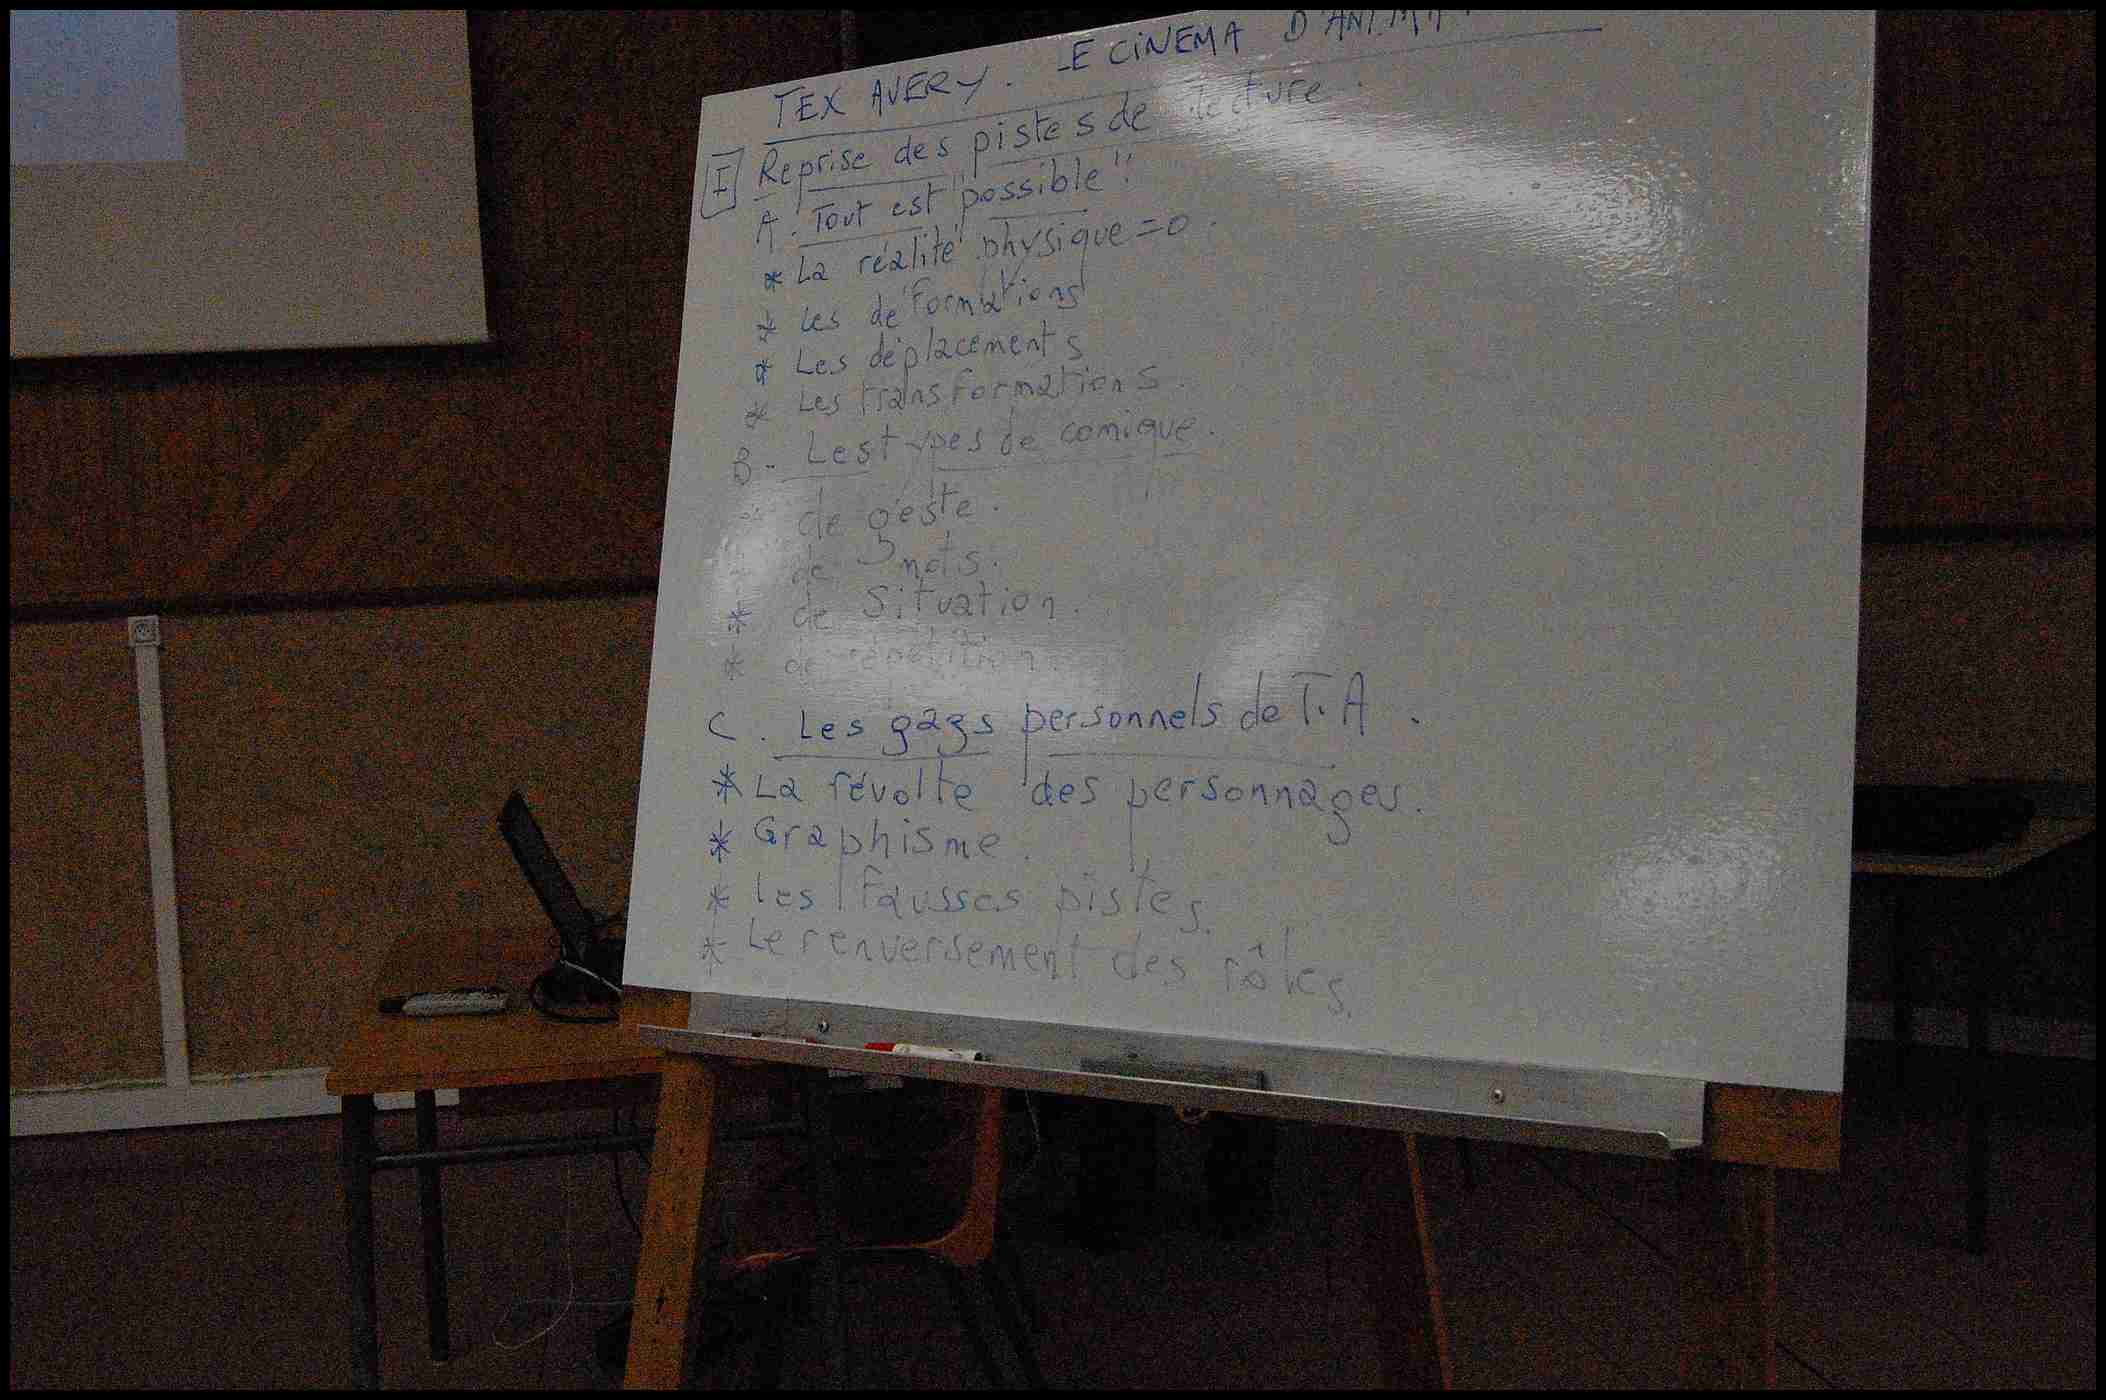 TEX AVERY. LE CINEMA
I Reprise des pistes de lecture.
A. "Tout est possible"
* La réalité physique = 0.
* Les déformations
* Les déplacements
* Les transformations.
B - Les types de comique.
* de geste.
* de mots.
* de situation.
* de répétition
C. Les gags personnels de T.A.
* La révolte des personnages.
* Graphisme.
* Les fausses pistes.
* Le renversement des rôles.